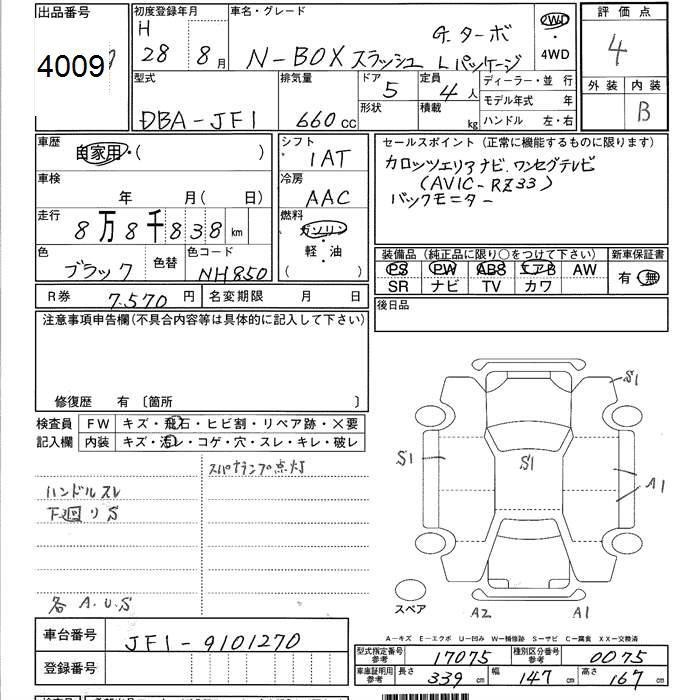 出品番号
4009
初度登録年月
H
28年 8月
車名・グレード
N-BOX スラッシュ
G.ターボ
Lパッケージ
2WD
・
4WD
評価点
4
外装 内装
B
型式
DBA-JF1
排気量
660cc
ドア
5
形状
定員
4人
積載
kg
ディーラー・並行
モデル年式 年
ハンドル 左・右
車歴
自家用・( )
シフト
1AT
車検
年 月( 日)
冷房
AAC
走行
8万8千838km
燃料
ガソリン
・
軽・油
( )
色
ブラック
色替
色コード
NH850
セールスポイント (正常に機能するものに限ります)
カロッツェリアナビ.ワンセグテレビ
(AVIC-RZ33)
バックモニター
装備品 (純正品に限り○をつけて下さい)
新車保証書
PS PW ABS エアB AW
SR ナビ TV カワ
有・無
R券
7.570円
名変期限 月 日
後日品
注意事項申告欄(不具合内容等は具体的に記入して下さい)
修復歴 有 〔箇所 〕
検査員
記入欄
FW キズ・飛石・ヒビ割・リペア跡・×要
内装 キズ・汚れ・コゲ・穴・スレ・キレ・破レ
ハンドルスレ
下廻りS
各 A.U.S
点灯
S1
S1
S1
A1
A2
A1
スペア
A－キズ E－エクボ U－凹み W－補修跡 S－サビ C－腐食 XX－交換済
車台番号
JF1-9101270
登録番号
型式指定番号
参考
17075
種別区分番号
参考
0075
車庫証明用
参考
長さ
339cm
幅
147cm
高さ
167cm